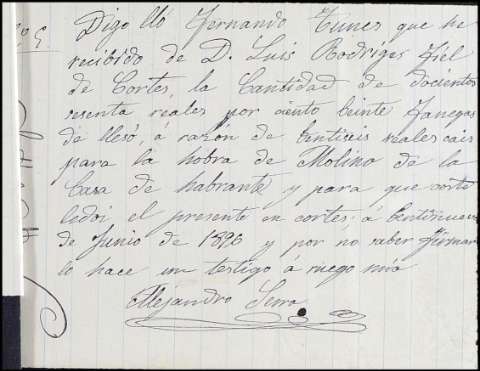 Digo lló Fernando Tunes que he
recibido de D. Luis Rodriges Fiel
de Cortes, la Cantidad de docientos
sesenta reales por ciento beinte fanegas
de lleso á razon de bentiseis reales cais
para la hobra de Molino de la
Casa de habrante y para que conste
ledoi el presente en cortes, á bentinueve
de Junio de 1896 y por no saber firmar
lo hace un testigo á ruego mio
Alejandro Serra